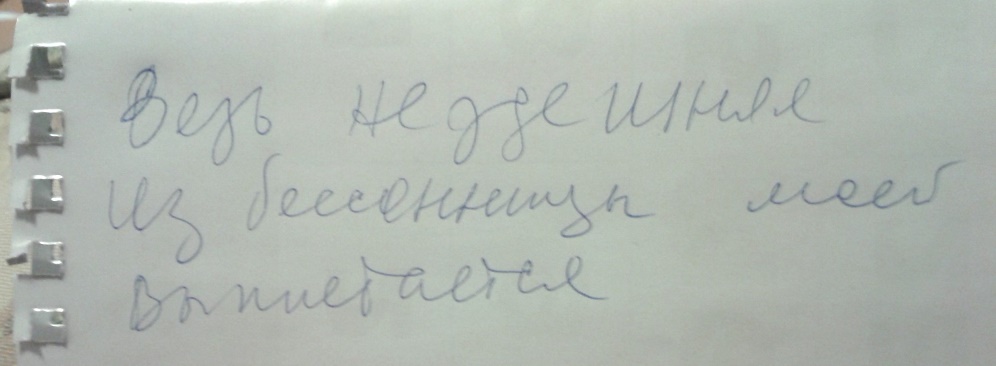 Ведь нездешняя
Из бессонницы моей
выплетается